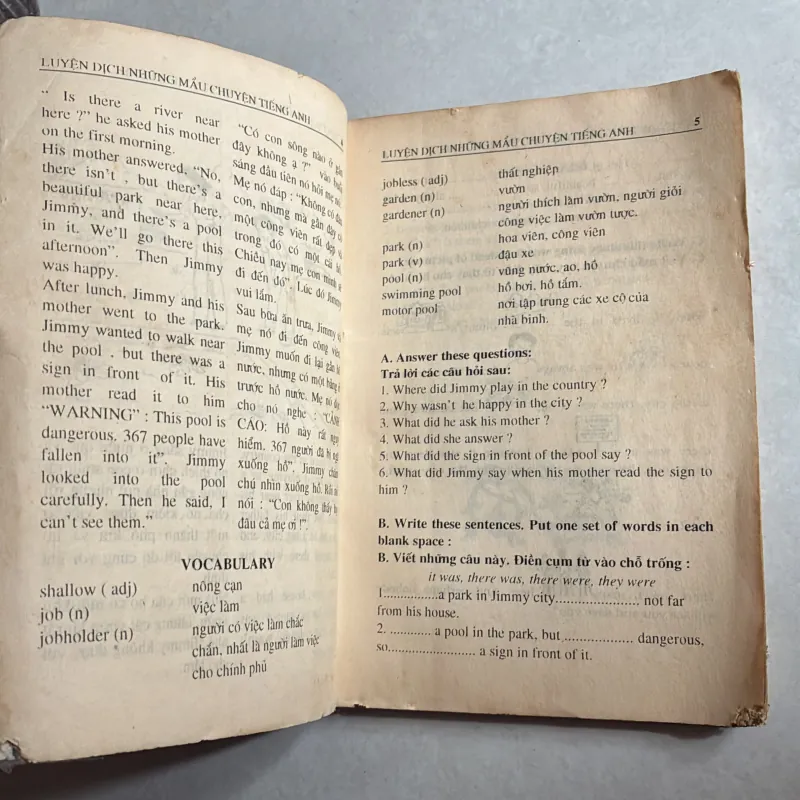 LUYỆN DỊCH NHỮNG MẨU CHUYỆN TIẾNG ANH
“ Is there a river near
here ?” he asked his mother
on the first morning.
His mother answered, “No,
there isn’t , but there’s a
beautiful park near here,
Jimmy, and there’s a pool
in it. We’ll go there this
afternoon”. Then Jimmy
was happy.
After lunch, Jimmy and his
mother went to the park.
Jimmy wanted to walk near
the pool . but there was a
sign in front of it. His
mother read it to him
“WARNING” : This pool is
dangerous. 367 people have
fallen into it”. Jimmy
looked into the pool
carefully. Then he said, I
can’t see them.”
“Có con sông nào ở gần
đây không ạ ?” vào buổi
sáng đầu tiên nó hỏi mẹ nó.
Mẹ nó đáp : “Không có đâu
con, nhưng mà gần đây có
một công viên rất đẹp và
trong đó có một cái hồ.
Chiều nay mẹ con mình sẽ
đi đến đó”. Lúc đó Jimmy
vui lắm.
Sau bữa ăn trưa, Jimmy và
mẹ nó đi đến công viên.
Jimmy muốn đi lại gần hồ
nước, nhưng có một bảng ở
trước hồ nước. Mẹ nó đọc
cho nó nghe : “CẢNH
CÁO: Hồ này rất nguy
hiểm. 367 người đã bị ngã
xuống hồ”. Jimmy chăm
chú nhìn xuống hồ. Rồi nó
nói : “Con không thấy họ
đâu cả mẹ ơi !”.
VOCABULARY
shallow ( adj) nông cạn
job (n) việc làm
jobholder (n) người có việc làm chắc
chắn, nhất là người làm việc
cho chính phủ
LUYỆN DỊCH NHỮNG MẨU CHUYỆN TIẾNG ANH 5
jobless ( adj) thất nghiệp
garden (n) vườn
gardener (n) người thích làm vườn, người giỏi
công việc làm vườn tược.
park (n) hoa viên, công viên
park (v) đậu xe
pool (n) vũng nước, ao, hồ
swimming pool hồ bơi, hồ tắm.
motor pool nơi tập trung các xe cộ của
nhà binh.
A. Answer these questions:
Trả lời các câu hỏi sau:
1. Where did Jimmy play in the country ?
2. Why wasn’t he happy in the city ?
3. What did he ask his mother ?
4. What did she answer ?
5. What did the sign in front of the pool say ?
6. What did Jimmy say when his mother read the sign to
him ?
B. Write these sentences. Put one set of words in each
blank space :
B. Viết những câu này. Điền cụm từ vào chỗ trống :
it was, there was, there were, they were
1..............a park in Jimmy city..................... not far
from his house.
2. ............ a pool in the park, but ................. dangerous,
so...................... a sign in front of it.